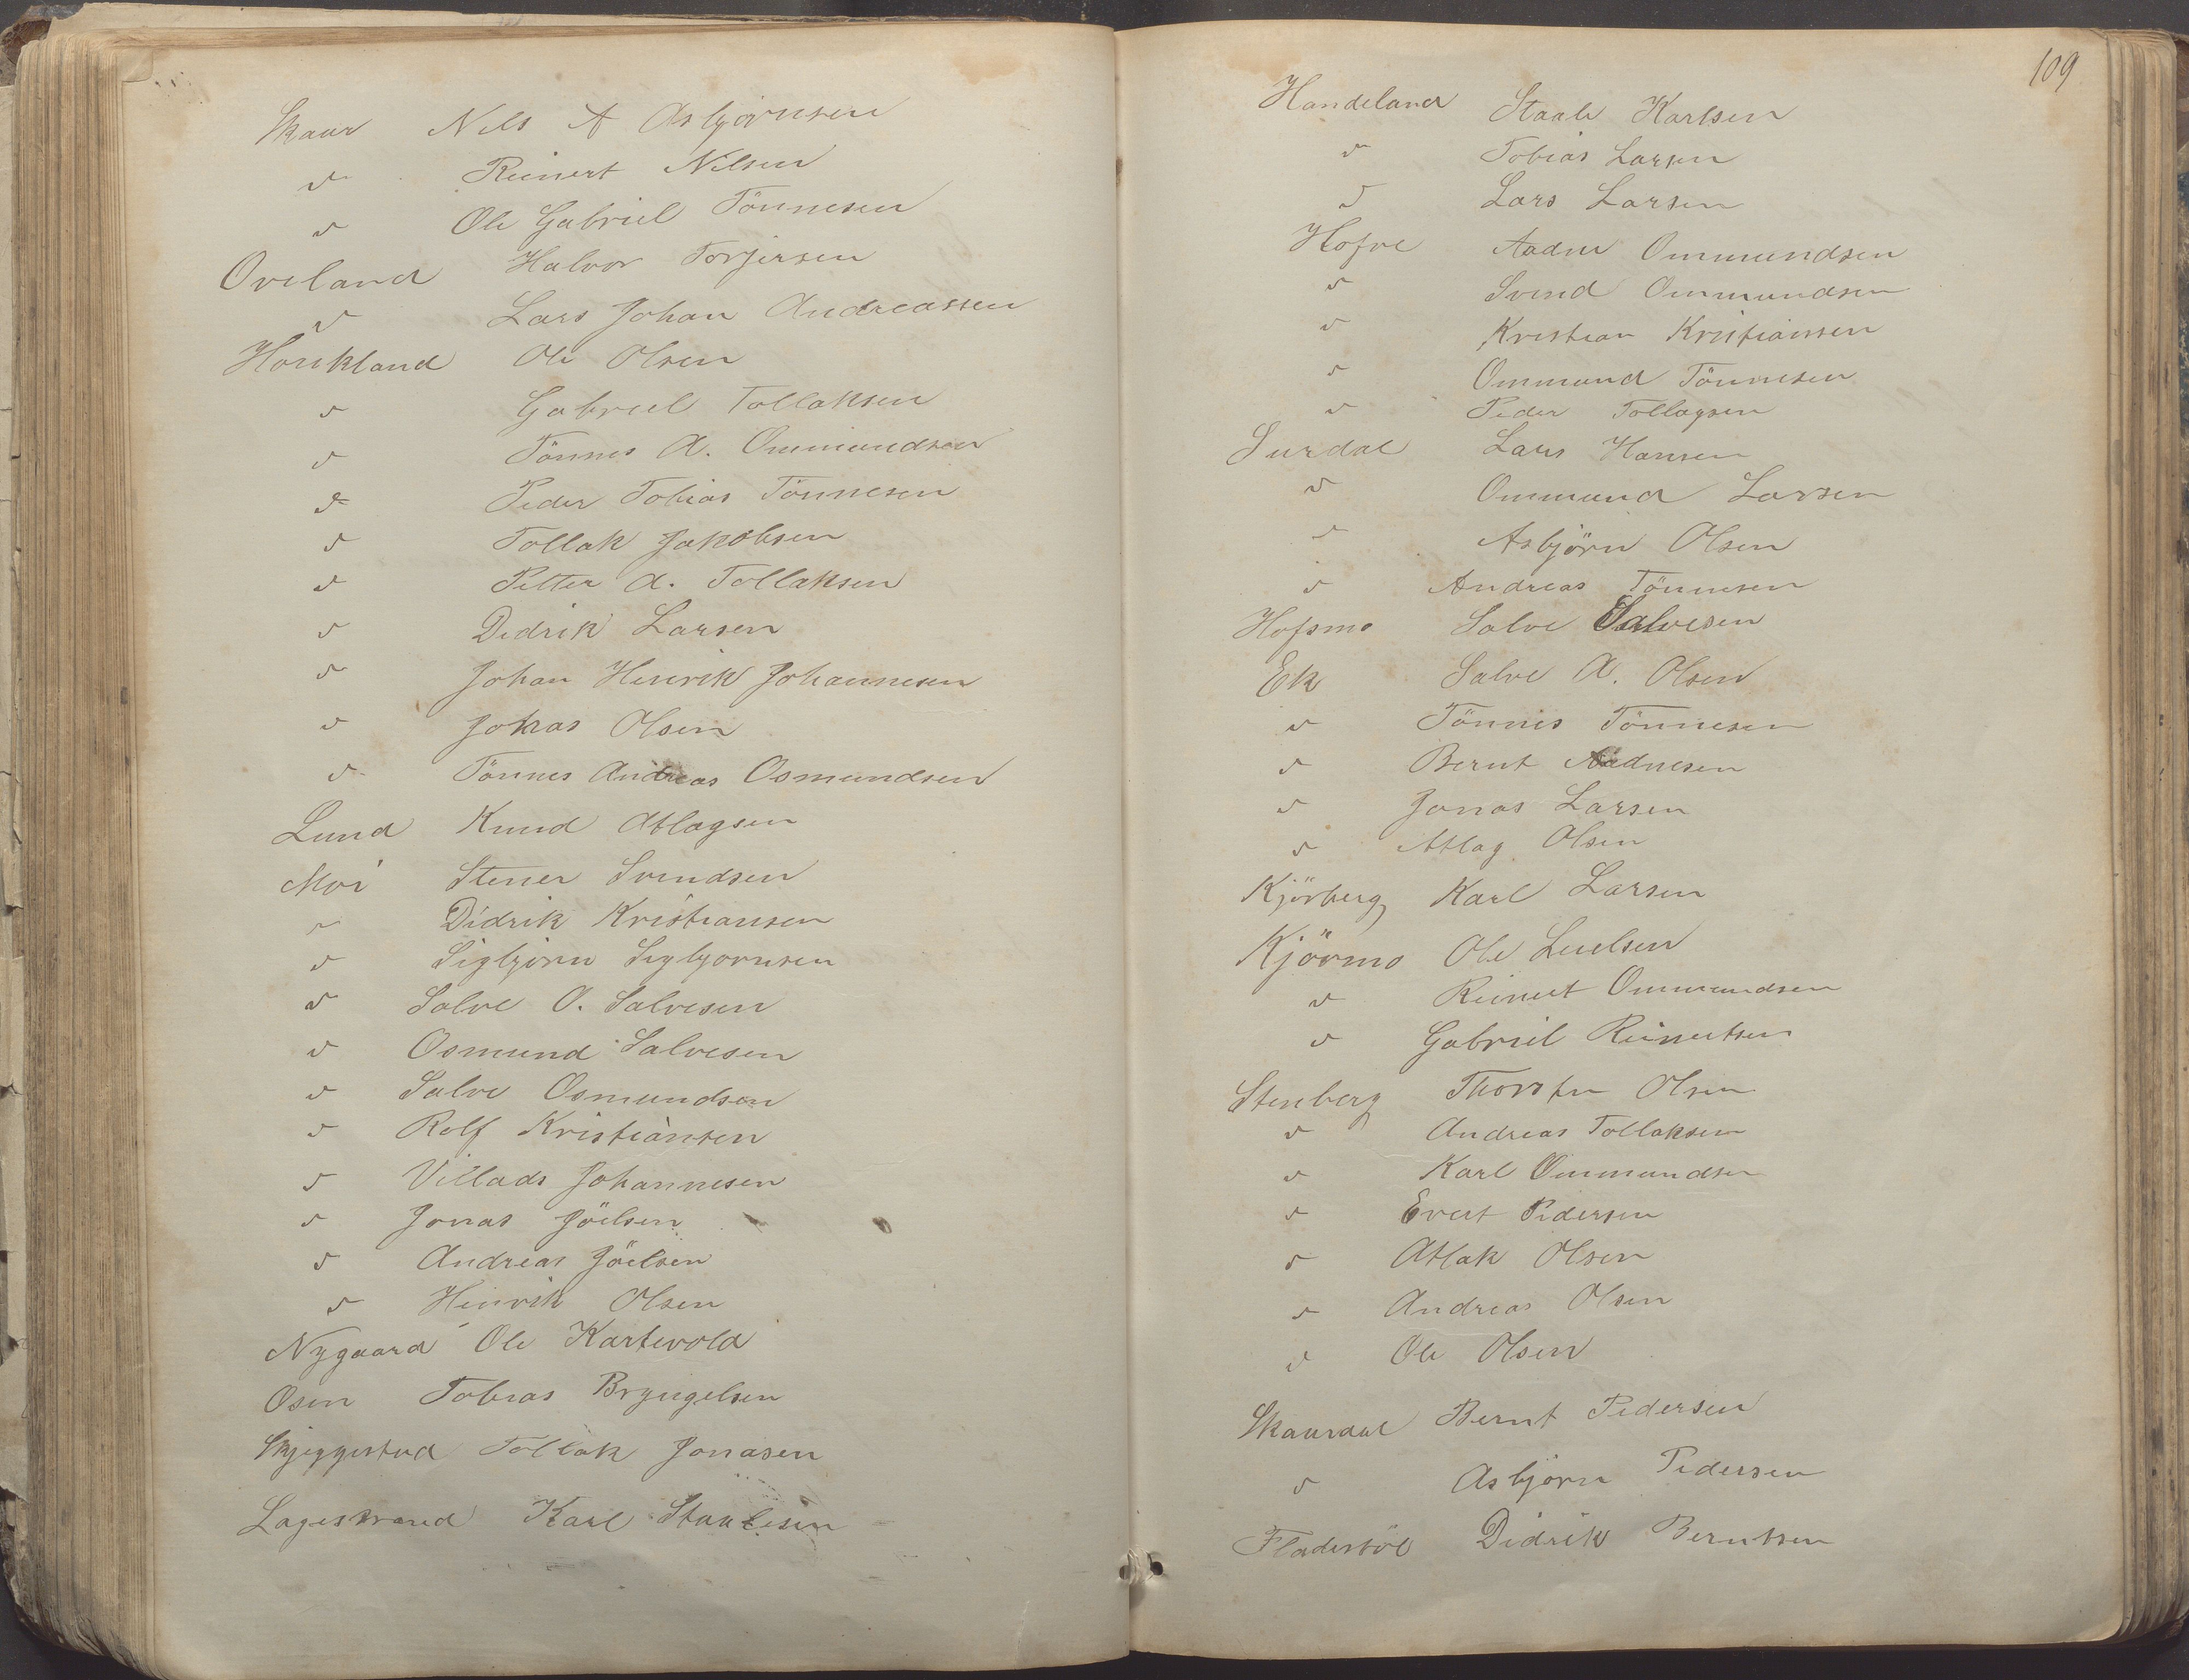 Skaar Nils A Asbjörnsen
d Reinert Nilsen
d Ole Gabriel Tönnesen
Oveland Halvor Torjersen
d Lars Johan Andreassen
Houkland Ole Olsen
d Gabriel Tollaksen
d Tönnes A. Ommundsen
d Peder Tobias Tönnesen
d Tollak Jakobsen
d Petter A. Tollaksen
d Didrik Larsen
d Johan Henrik Johannesen
d Jokas Olsen
d Tönnes Andreas Osmundsen
Lund Knud Atlagsen
Moi Stener Svendsen
d Didrik Kristiansen
d Sigbjörn Sigbjornsen
d Salve O. Salvesen
d Osmund Salvesen
d Salve Osmundsen
d Rolf Kristiansen
d Villads Johannesen
d Jonas Jöelsen
d Andreas Jöelsen
d Henrik Olsen
Nygaard Ole Kartevold
Osen Tobias Bryngelsen
Skjeggestad Tollak Jonasen
Lagestrand Karl Staalesen
109
Handeland Staale Karlsen
d Tobias Larsen
d Lars Larsen
Hofve Aadne Ommundsen
d Svend Ommundsen
d Kristian Kristiansen
d Ommund Tönnesen
d Peder Tollagsen
Surdal Lars Hansen
d Ommund Larsen
d Asbjörn Olsen
d Andreas Tönnesen
Hofsmo Salve Salvesen
Ek Salve A. Olsen
d Tönnes Tönnesen
d Bernt Aadnesen
d Jonas Larsen
d Atlag Olsen
Kjörberg Karl Larsen
Kjörmo Ole Luelsen
d Reinert Ommundsen
d Gabriel Reinertsen
Stenberg Thorsten Olsen
d Andreas Tollaksen
d Karl Ommundsen
d Evert Pedersen
d Atlak Olsen
d Andreas Olsen
d Ole Olsen
Skaardal Bernt Pedersen
d Asbjörn Pedersen
Fladestöl Didrik Berntsen